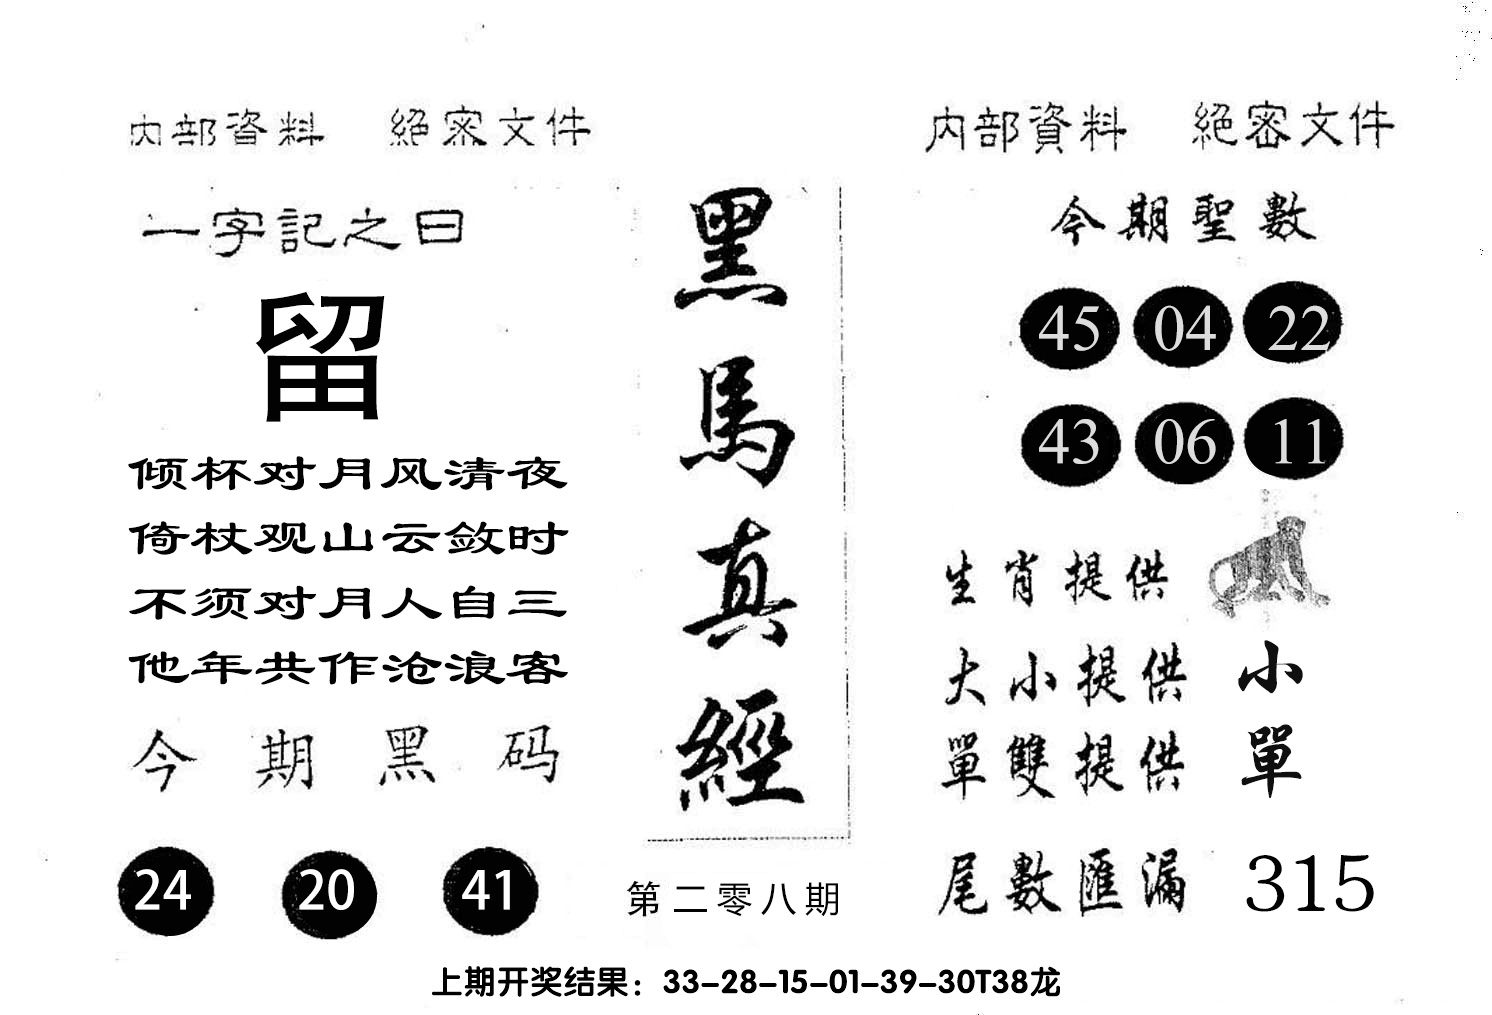 内部資料 絕密文件
一字記之曰
留
倾杯对月风清夜
倚杖观山云敛时
不须对月人自三
他年共作沧浪客
今期黑码
24 20 41
黑馬真經
第二零八期
内部資料 絕密文件
今期聖數
45 04 22
43 06 11
生肖提供
大小提供 小
單雙提供 單
尾數匯漏 315
上期开奖结果：33-28-15-01-39-30T38龙